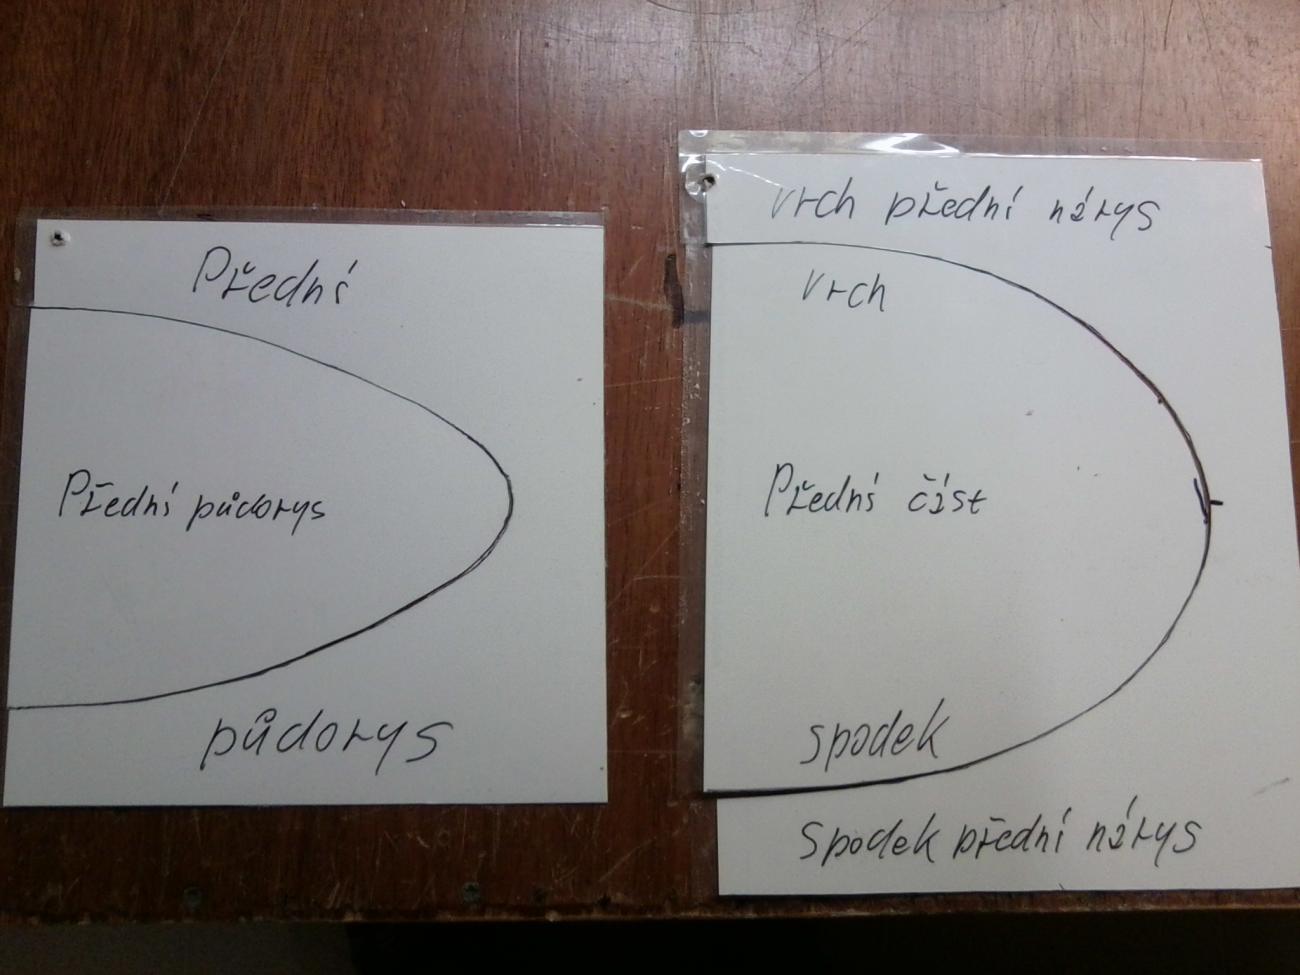 Přední
Přední půdorys
půdorys
vrch přední nárys
vrch
Přední číst
spodek
spodek přední nárys